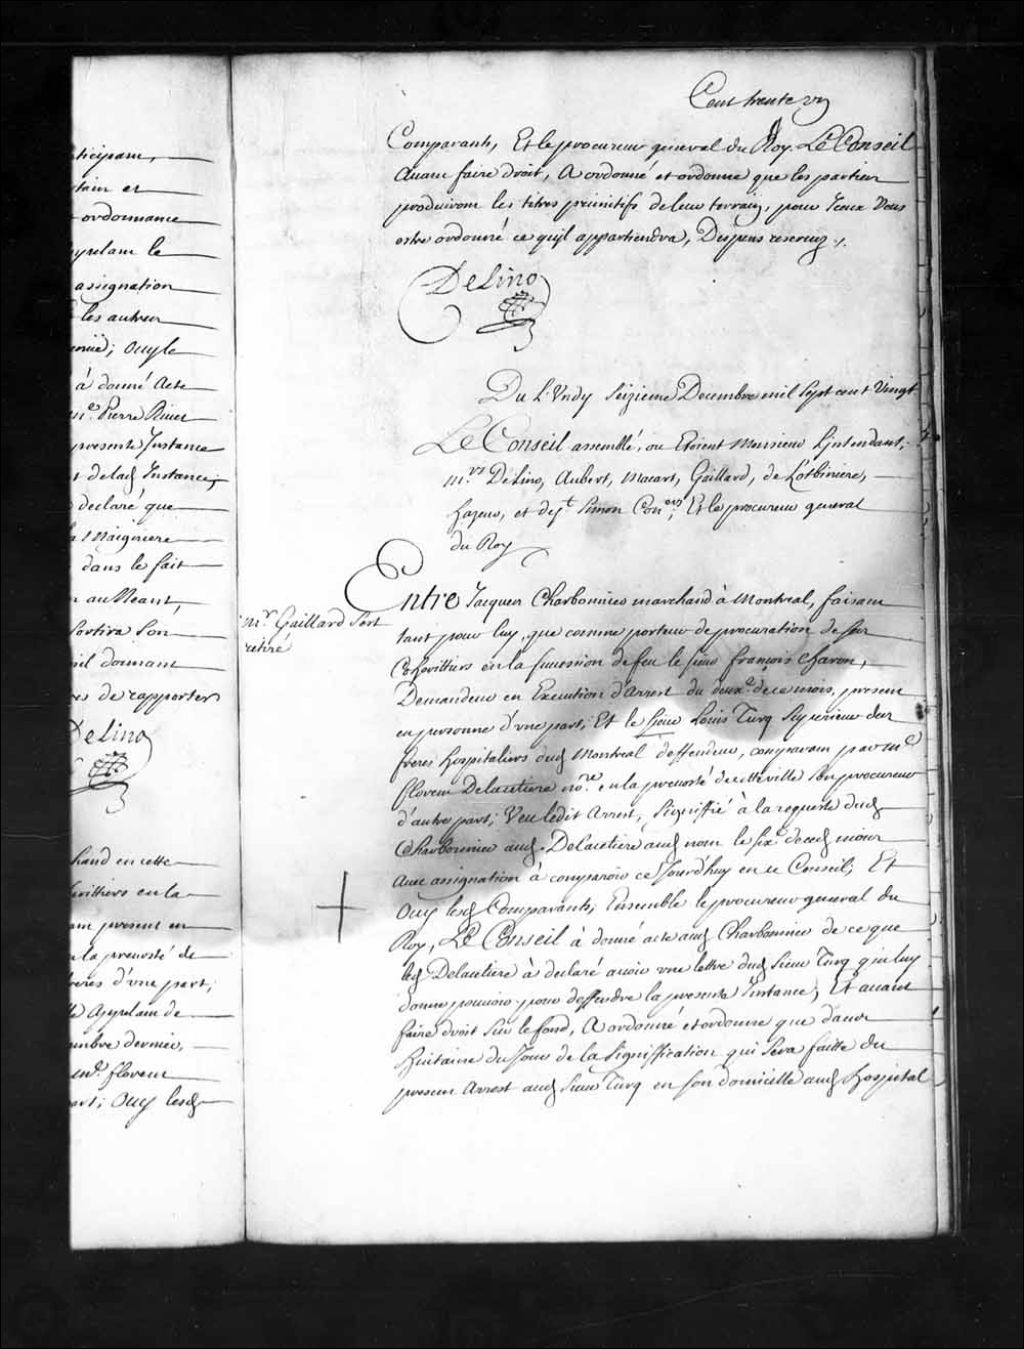 ticipans,
tain et
ordonnance
pellant le
assignation
les autres
Ouy le
à donné Acte
me. Pierre Rivet
presente Instance
delad. Instance;
declaré que
Maigniere
dans le fait
au Neant,
Sortira Son
donnant
de rapporter
Delino
chand en cette
heritiers en la
present en
la prevosté de
freres d'vne part,
appelant de
embre dernier,
me. floreur
part; Ouy lesd.
Cent trente vn
Comparants, Et le procureur general du Roy. Le Conseil
Avant faire droit, A ordonné et ordonne que les parties
produiront les titres primitifs de leur terrain, pour Iceux Veus
estre ordonné ce qu'il appartiendra, Despens reservez ./.
Delino
Du Lundy Seizieme Decembre mil Sept cent Vingt
Le Conseil assemblé, ou Etoient Monsieur L'intendant,
mrs. Delino, Aubert, Macart, Gaillard, de Lotbiniere,
hazeur, et dest. Simon Coners, Et le procureur general
du Roy
mr. Gaillard S'est
retiré
Entre Jacques Charbonnier marchand à Montreal, faisant
tant pour luy, que comme porteur de procuration de ses
Coheritiers en la succession de feu le sieur françois Charon,
Demandeur en Execution d'Arrest du deuxe. de ce mois, present
en personne d'vne part; Et le Sieur Louis Turq Superieur des
freres hospitaliers dud. Montreal deffendeur, comparant par me.
floreur Delacetiere nore. en la prevosté de cette ville Son procureur
d'autre part; Veu ledit Arrest, Signiffié à la requeste dud.
Charbonnier aud. Delacetiere aud. nom le six de ced. mois
Avec assignation à comparoir ce Jourd'huy en ce Conseil; Et
Ouy lesd. Comparants; Ensemble le procureur general du
Roy, Le Conseil à donné acte aud. Charbonnier de ce que
led. Delacetiere à declaré avoir vne lettre dud. Sieur Turq qui luy
donne pouvoir pour deffendre la presente Instance; Et avant
faire droit Sur le fond, A ordonné et ordonne que dans
Huitaine du Jour de la Signiffication qui Sera faitte du
present Arrest aud. Sieur Turq en son domicille aud. hospital